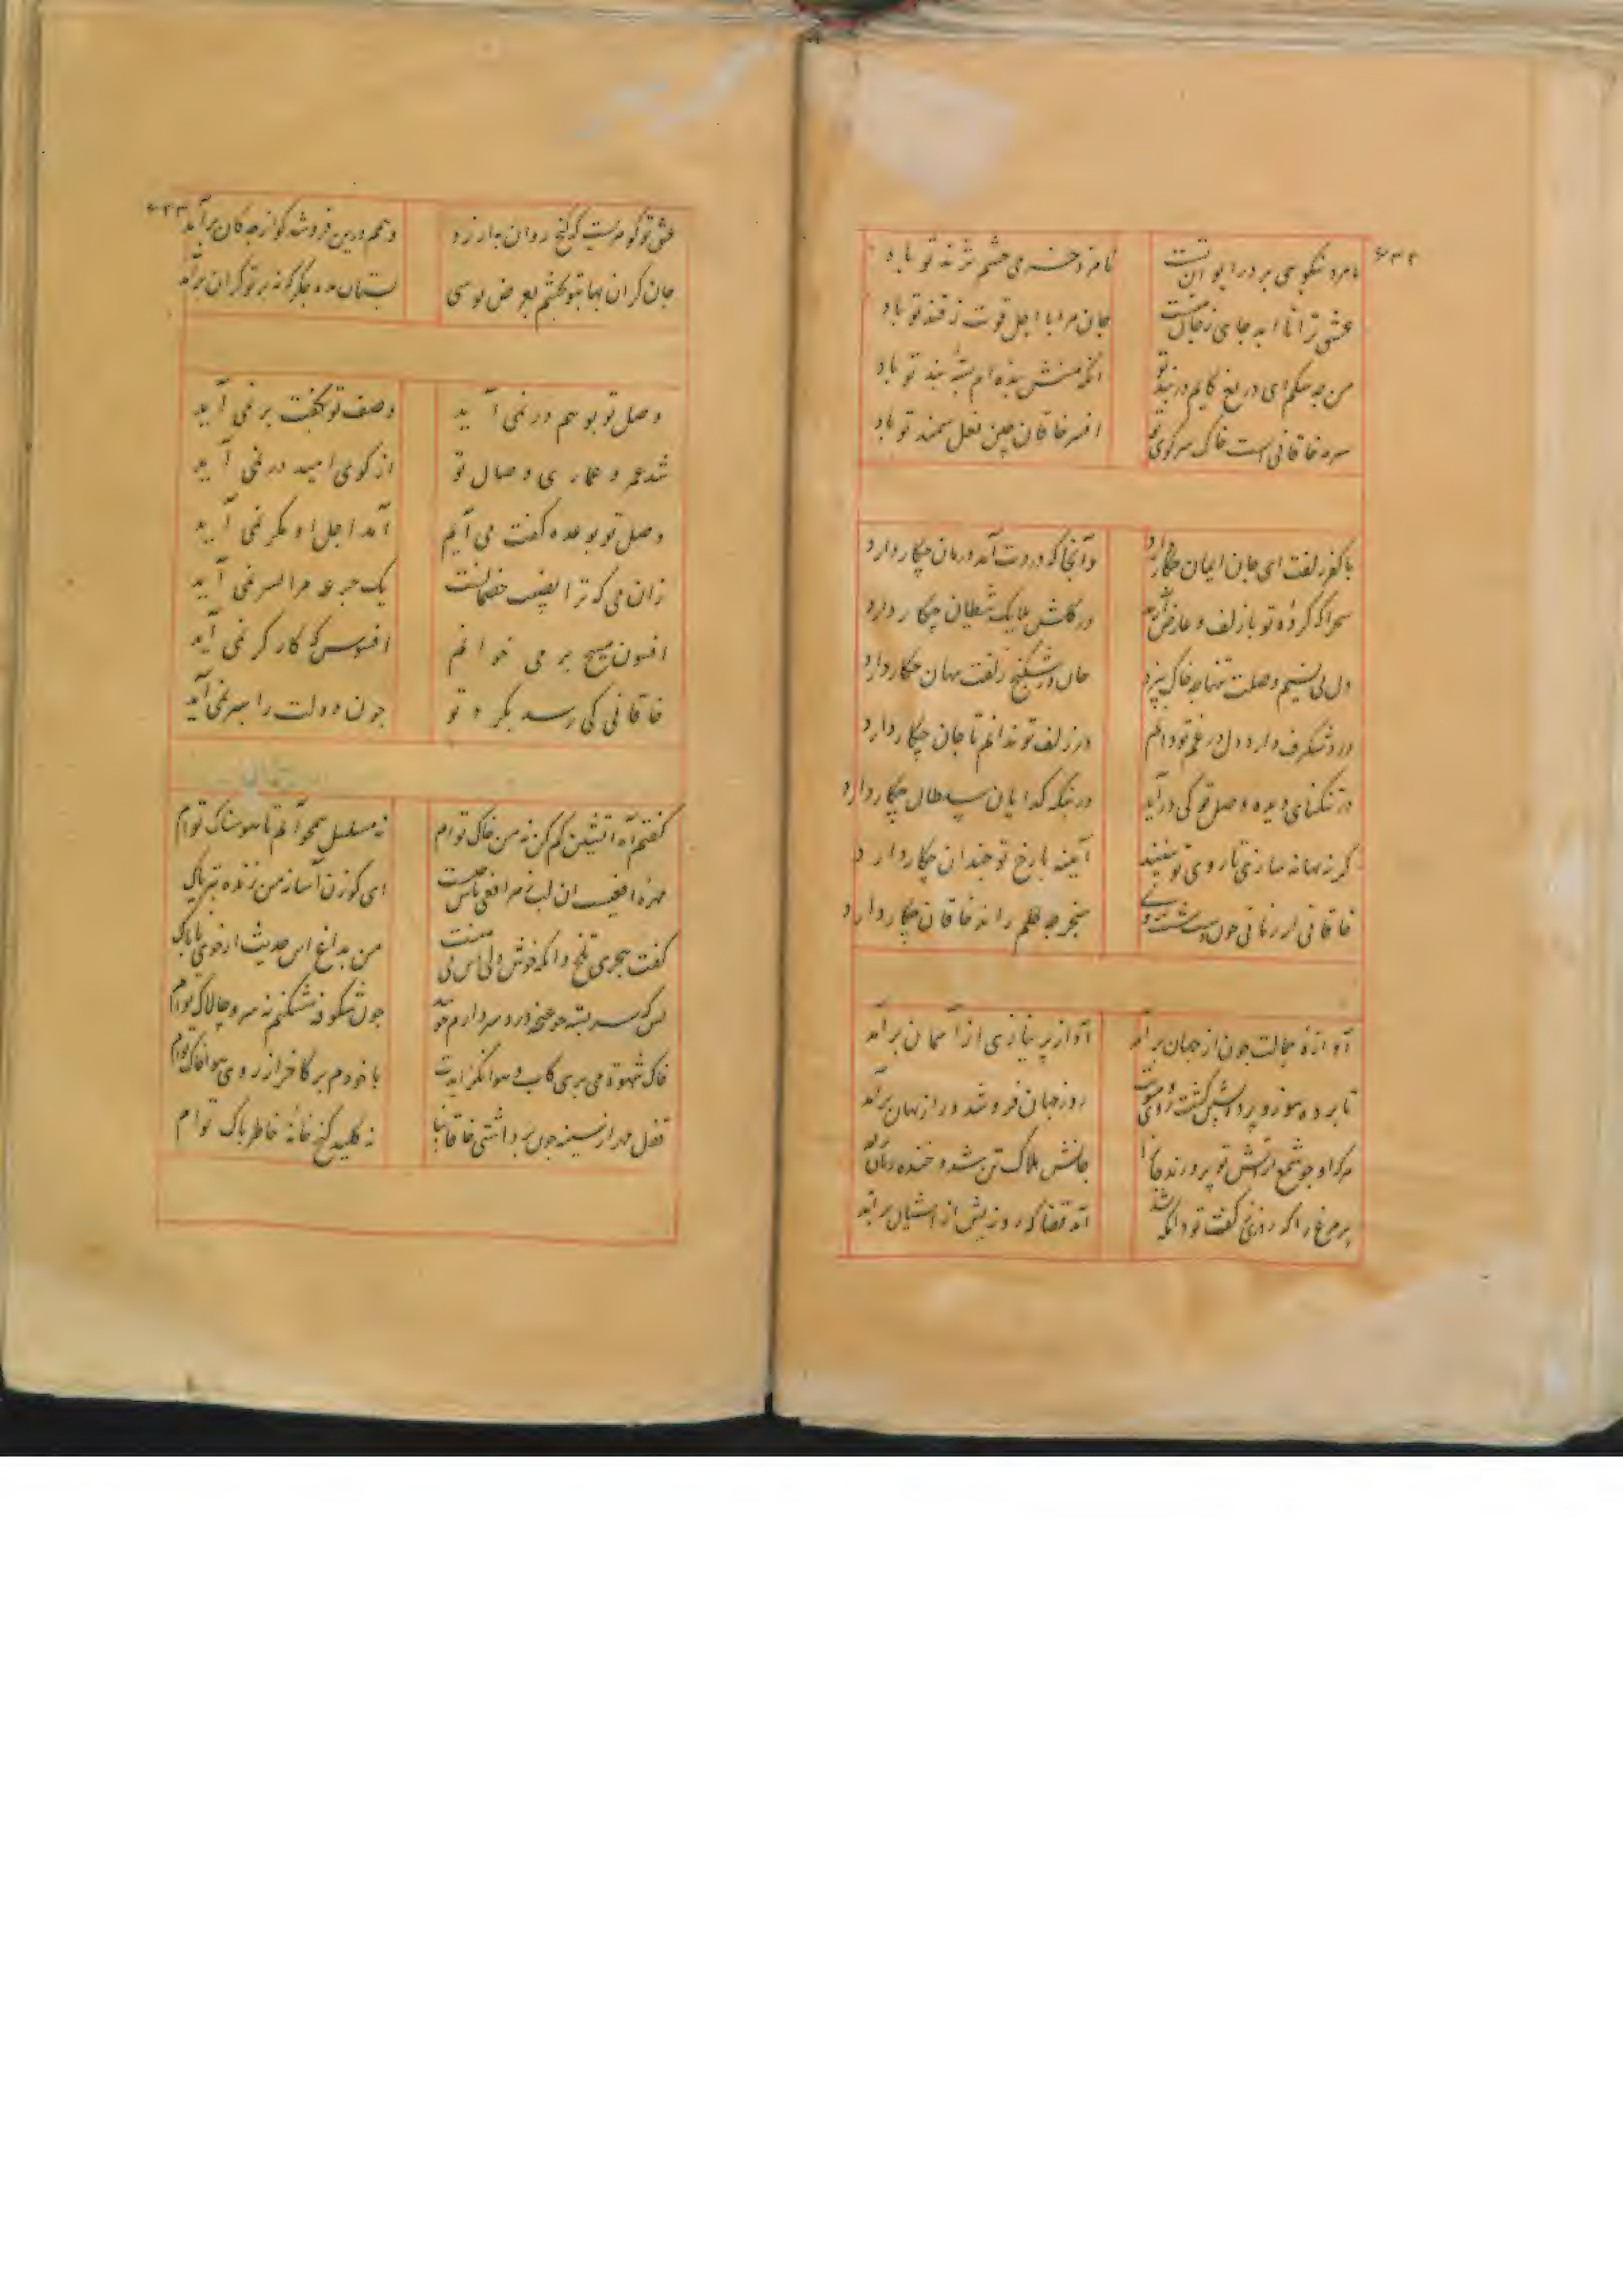 ۶۳۲
نامزد نیکویی بر در ایوان تست
نامزد خرمی چشم نژند تو باد
عشق ترا تا ابد جای ز جان منست
جان مرا با اجل قوت ز قند تو باد
من به تو ای دریغ کایم در بند تو
آنکه منش بنده ام بسته بند تو باد
سر خاقانی است خاک سر کوی تو
افسر خاقان چین نعل سمند تو باد
با کفر زلفت ای جان ایمان چکار دارد
وآنجا که دردت آمد درمان چکار دارد
سحرا که کرده تو با زلف و عارض آید
در گلشن ملایک شیطان چکار دارد
دل بی نسیم وصلت تنها چه خاک بیزد
جان در شکنج زلفت پنهان چکار دارد
درد شگرف دارد دل در غم تو دایم
در زلف تو ندانم تا جان چکار دارد
در تنگنای دیده وصل تو کی درآید
در بنگه گدایان سلطان چکار دارد
گر نه بهانه سازی تا روی تو نبینند
آیینه با رخ تو چندان چکار دارد
خاقانی از زمانی چون دست شست
سنجر چه حکم راند خاقان چکار دارد
آوازه جمالت چون از جهان برآمد
آواز بی نیازی از آسمان برآمد
تا برده
روز جهان فروشد و راز نهان برآمد
هر کاو چو شمع از آتش تو پرورند جان را
جانش هلاک تن شد و خنده زنان
هر مرغ را که روزی کفت تو دانه
آمد قضا که روزیش از آشیان برآمد
۶۳۳
عشق تو گوهریست که گنج روان به ارزد
وهم در این فروشد کو از چه کان برآمد
جان گران بها به تو بخشم به عرض بوسی
بستان مده جگر گونه بر تو گران برآمد
وصل تو به وهم در نمی آید
وصف تو بگفت بر نمی آید
شد عمر و عماری وصال تو
از کوی امید در نمی آید
وصل تو به وعده گفت می آیم
آمد اجل او مگر نمی آید
زان می که ترا نصیب خصمانست
یک جرعه مرا بسر نمی آید
افسون مسیح بر می خوانم
افسوس که کارگر نمی آید
خاقانی کی رسد به گرد تو
چون دولت را به سر نمی آید
گفتم آه آتشین کم کن نه من خاک توام
نه مسلسل همچو آبم تا هوسناک توام
مهره افعیست آن لب زهر افعی پاس چیست
ای گوزن آسا نه من زنده به تریاک
گفت هجری تلخ وانگه خوش
من به داغ این حدیث از خوی ناباک
بس که سربسته چو غنچه درد سر دارم چو
چون شکوفه نشکفم نه سرو چالاک توام
خاک شهوت می بری کاب و هوا
با خودم بر کاخر از روی هوا خاک توام
قفل مهر از سینه چون برداشتی خاقانیا
نه کلید گنج خانه خاطر پاک توام